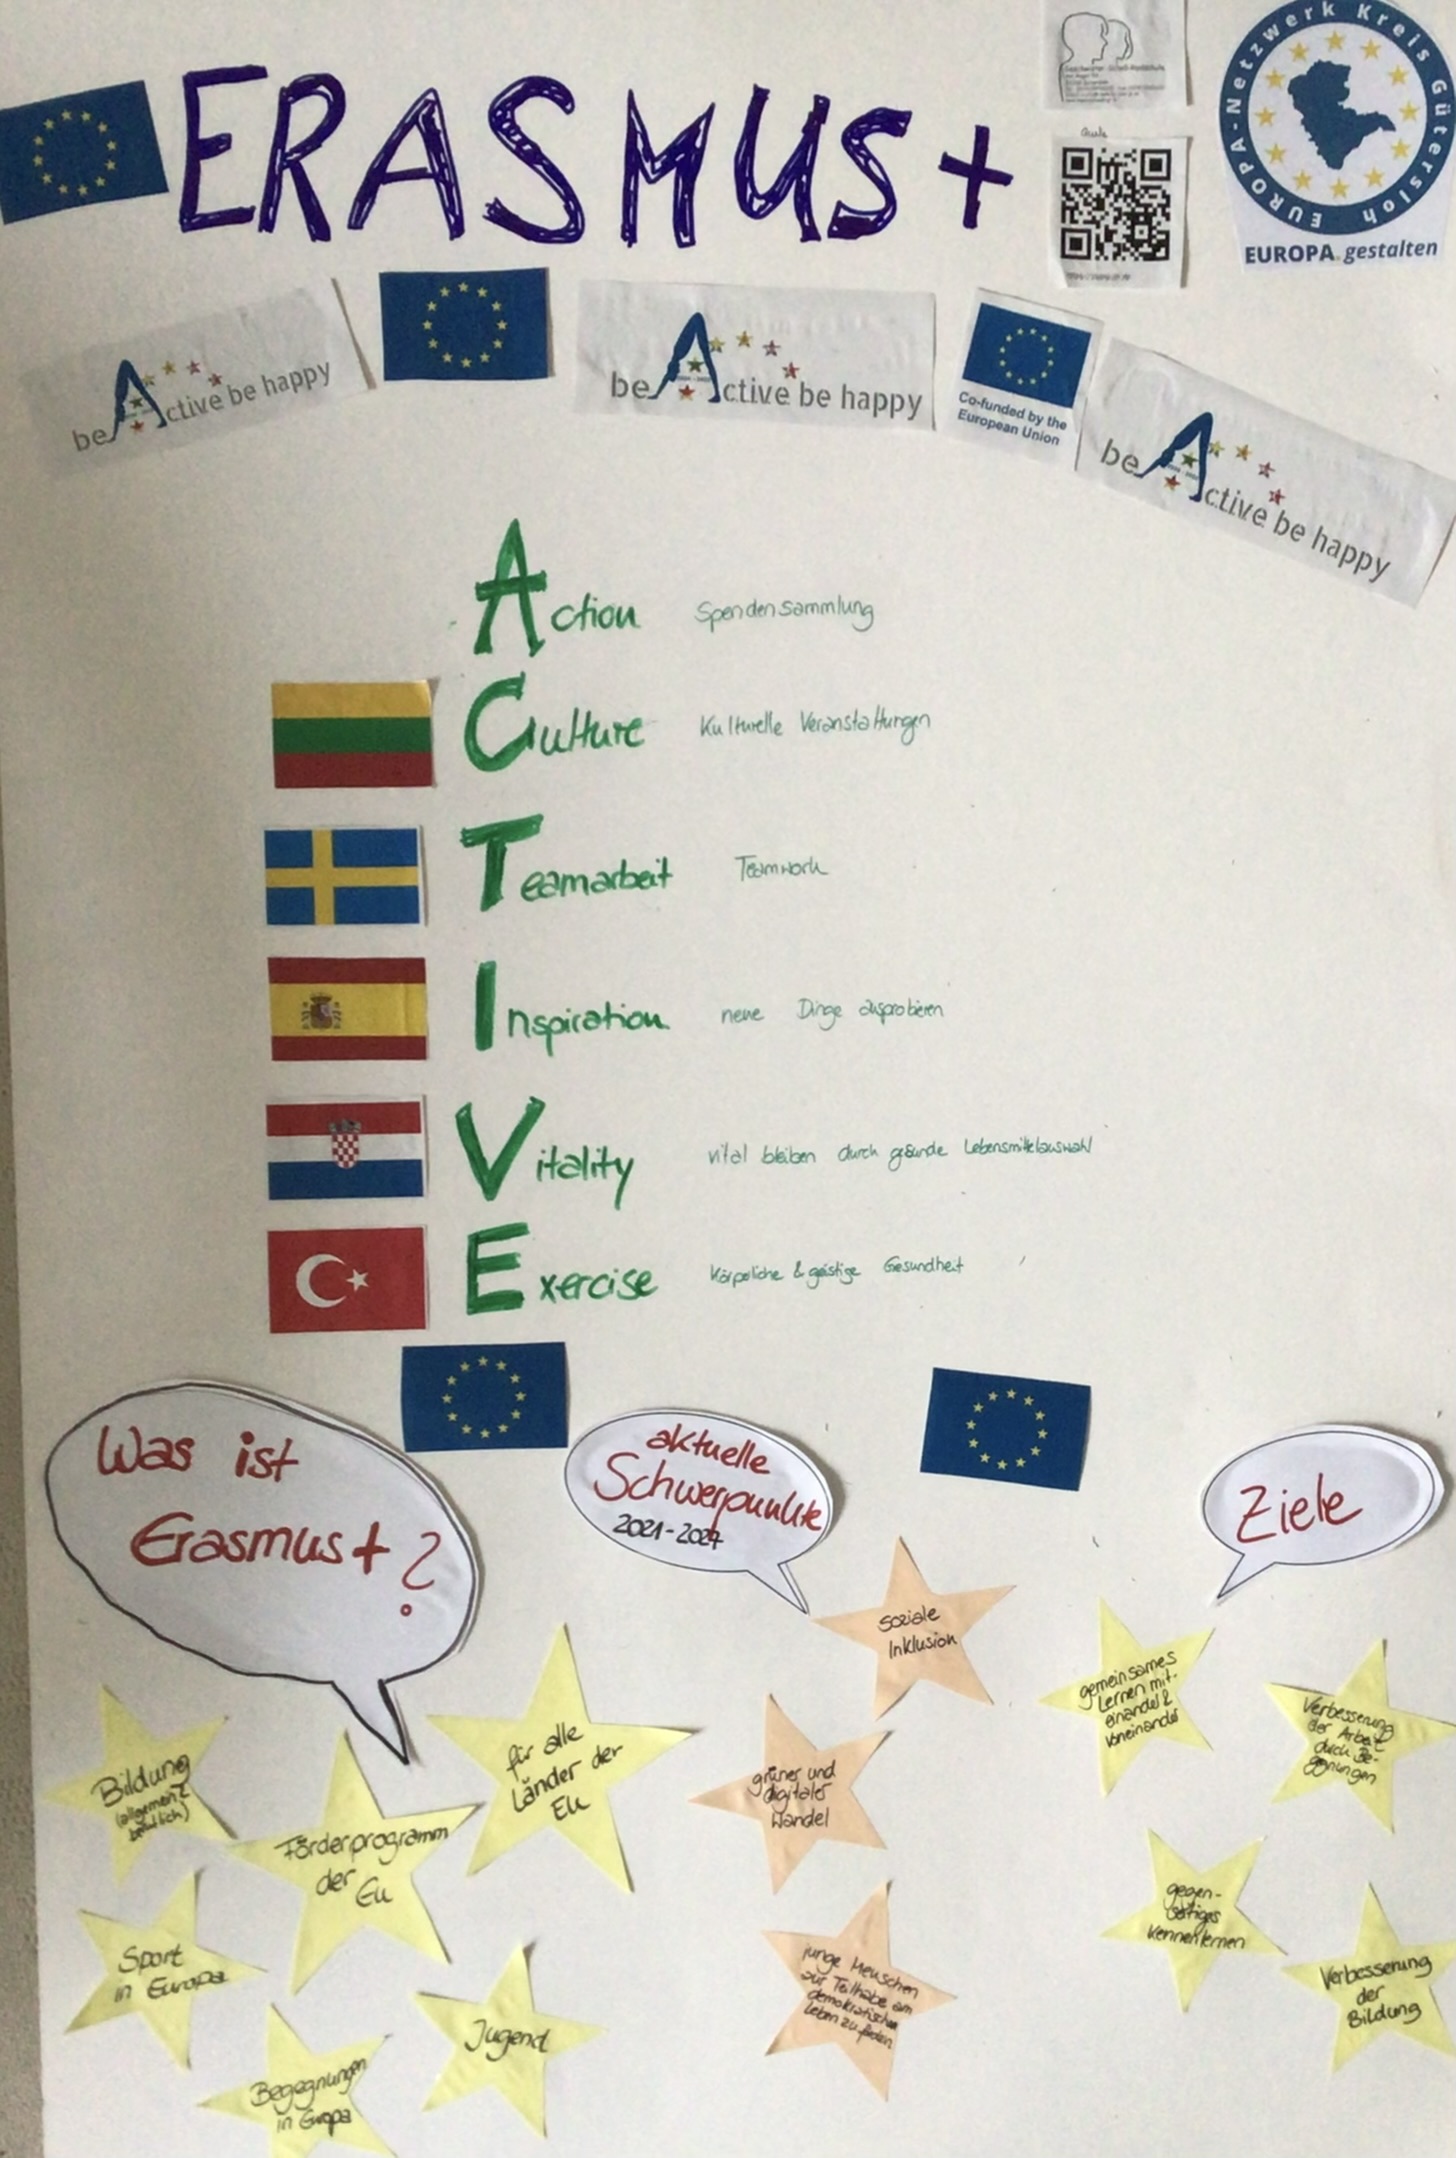 ERASMUS+
EUROPA-Netzwerk Kreis Gütersloh
EUROPA.gestalten
Aula
beActive be happy
beActive be happy
Co-funded by the
European Union
beActive be happy
Action Spendensammlung
Culture Kulturelle Veranstaltungen
Teamarbeit Teamwork
Inspiration neue Dinge ausprobieren
Vitality vital bleiben durch gesunde Lebensmittelauswahl
Exercise Körperliche & geistige Gesundheit
Was ist
Erasmus+?
Bildung
(allgemein &
beruflich)
Förderprogramm
der EU
für alle
Länder der
EU
Sport
in Europa
Begegnungen
in Europa
Jugend
aktuelle
Schwerpunkte
2021-2027
soziale
Inklusion
grüner und
digitaler
Wandel
junge Menschen
zur Teilhabe am
demokratischen
Leben zu fördern
Ziele
gemeinsames
Lernen mit-
einander &
voneinander
Verbesserung
der Arbeit
durch Be-
gegnungen
gegen-
seitiges
Kennenlernen
Verbesserung
der
Bildung